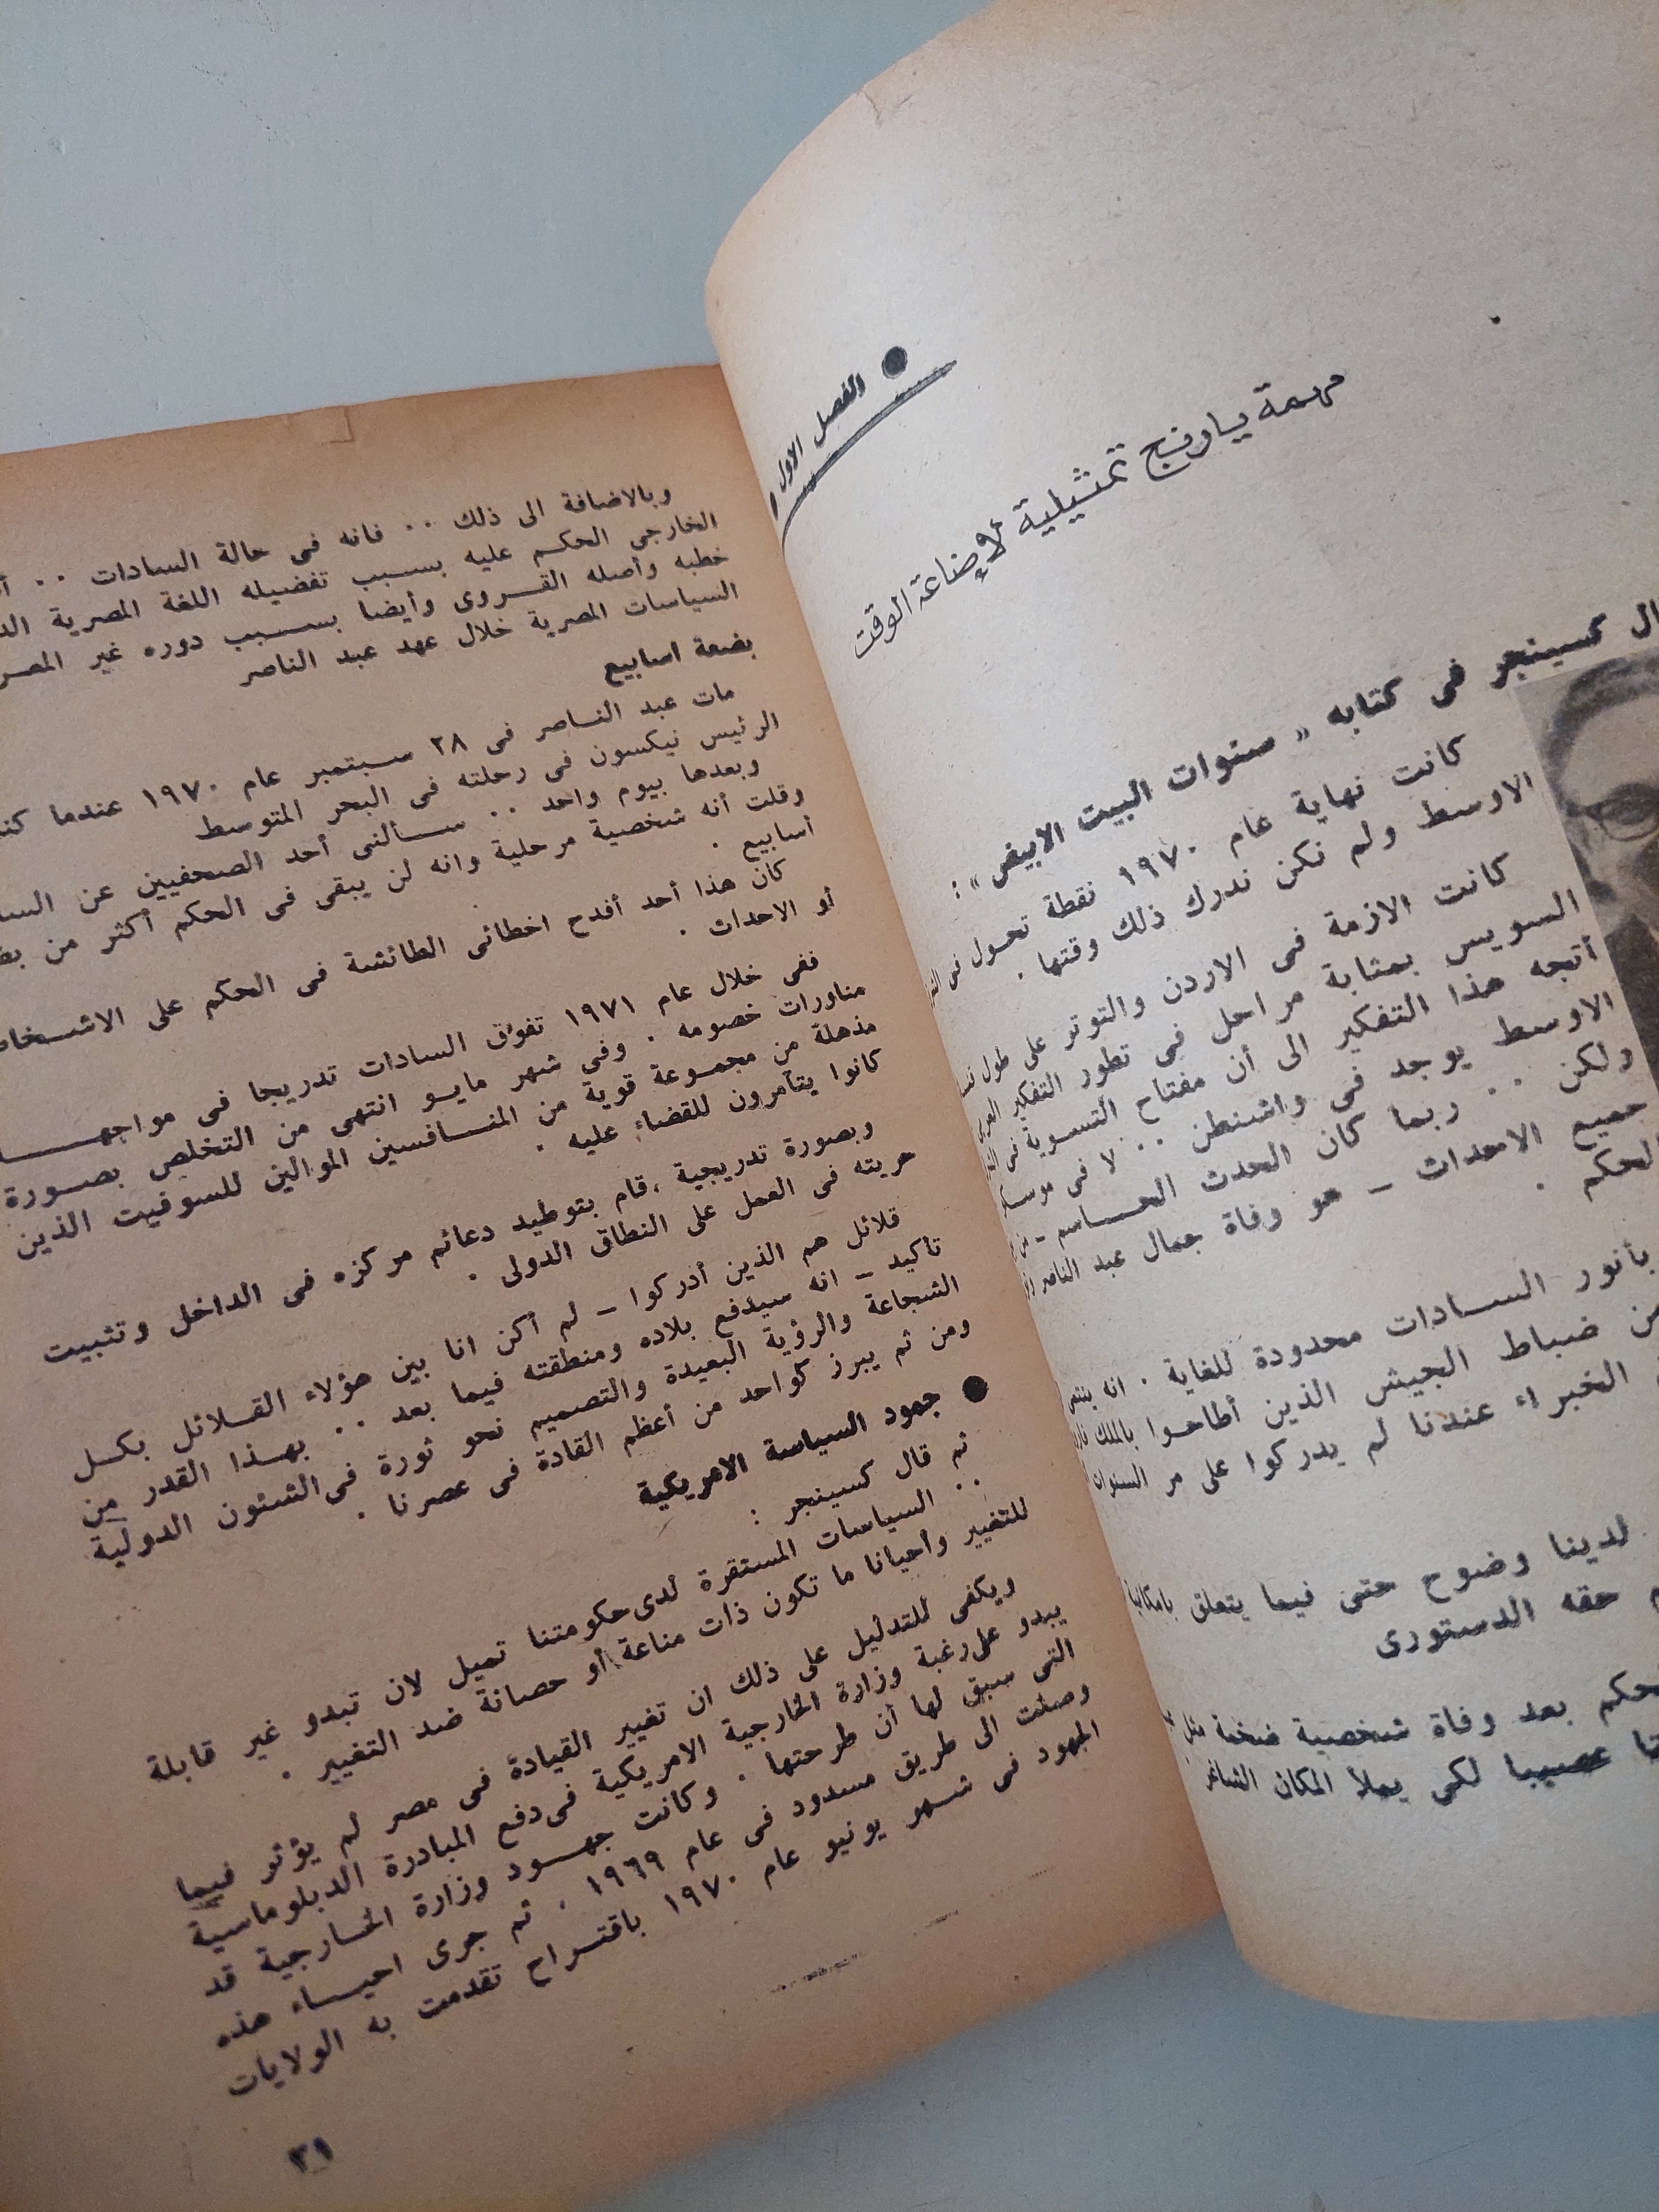 الفصل الاول
مهمة يارنج تمثيلية لإضاعة الوقت
كسينجر فى كتابه « سنوات البيت الابيض » :
كانت نهاية عام ١٩٧٠ نقطة تحول فى
الاوسط ولم نكن ندرك ذلك وقتها .
كانت الازمة فى الاردن والتوتر على طول
السويس بمثابة مراحل فى تطور التفكير
أتجه هذا التفكير الى أن مفتاح التسوية فى
الاوسط يوجد فى واشنطن .. لا فى
ولكن .. ربما كان الحدث الحاسم -
جميع الاحداث - هو وفاة جمال عبد الناصر
الحكم .
بأنور السادات محدودة للغاية . انه
ضباط الجيش الذين أطاحوا بالملك
الخبراء عندنا لم يدركوا على مر السنوات
لدينا وضوح حتى فيما يتعلق
حقه الدستورى
بعد وفاة شخصية ضخمة مثل
عصيبا لكى يملأ المكان الشاغر .
وبالاضافة الى ذلك .. فانه فى حالة السادات ..
الخارجى الحكم عليه بسبب تفضيله اللغة المصرية
خطبه وأصله القروى وأيضا بسبب دوره غير
السياسات المصرية خلال عهد عبد الناصر
بضعة اسابيع
مات عبد الناصر فى ٢٨ سبتمبر عام ١٩٧٠ عندما
الرئيس نيكسون فى رحلته فى البحر المتوسط
وبعدها بيوم واحد .. سألنى أحد الصحفيين عن
وقلت أنه شخصية مرحلية وانه لن يبقى فى الحكم أكثر من
أسابيع .
كان هذا أحد أفدح اخطائى الطائشة فى الحكم على
أو الاحداث .
ففى خلال عام ١٩٧١ تفوق السادات تدريجا فى
مناورات خصومه . وفى شهر مايو انتهى من التخلص بصورة
مذهلة من مجموعة قوية من المنافسين الموالين للسوفيت الذين
كانوا يتآمرون للقضاء عليه .
وبصورة تدريجية ، قام بتوطيد دعائم مركزه فى الداخل وتثبيت
حريته فى العمل على النطاق الدولى .
قلائل هم الذين أدركوا - لم أكن انا بين هؤلاء القلائل بكل
تأكيد - انه سيدفع بلاده ومنطقته فيما بعد .. بهذا القدر من
الشجاعة والرؤية البعيدة والتصميم نحو ثورة فى الشئون الدولية
ومن ثم يبرز كواحد من أعظم القادة فى عصرنا .
● جمود السياسة الامريكية
ثم قال كسينجر :
.. السياسات المستقرة لدى حكومتنا تميل لان تبدو غير قابلة
للتغيير وأحيانا ما تكون ذات مناعة أو حصانة ضد التغيير .
ويكفى للتدليل على ذلك ان تغيير القيادة فى مصر لم يؤثر فيما
يبدو على رغبة وزارة الخارجية الامريكية فى دفع المبادرة الدبلوماسية
التى سبق لها أن طرحتها . وكانت جهود وزارة الخارجية قد
وصلت الى طريق مسدود فى عام ١٩٦٩ . ثم جرى احياء هذه
الجهود فى شهر يونيو عام ١٩٧٠ باقتراح تقدمت به الولايات
٣١